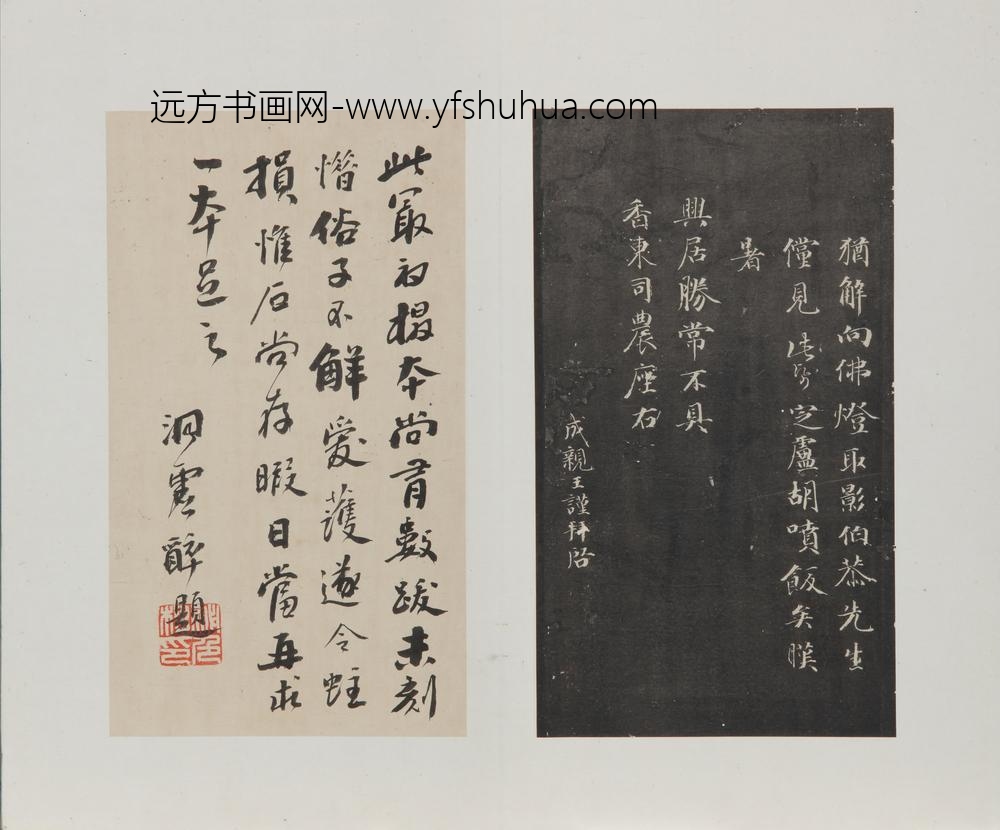 远方书画网-www.yfshuhua.com
猶解向佛燈取影伯恭先生
儻見此易定盧胡噴飯矣暌
暑
興居勝常不具
香東司農座右
成親王謹拜啓
此冣初搨本尚有數跋未刻
惜俗子不解愛護遂令蛀
損惟石尚存暇日當再求
一本足之
洞雲醉題